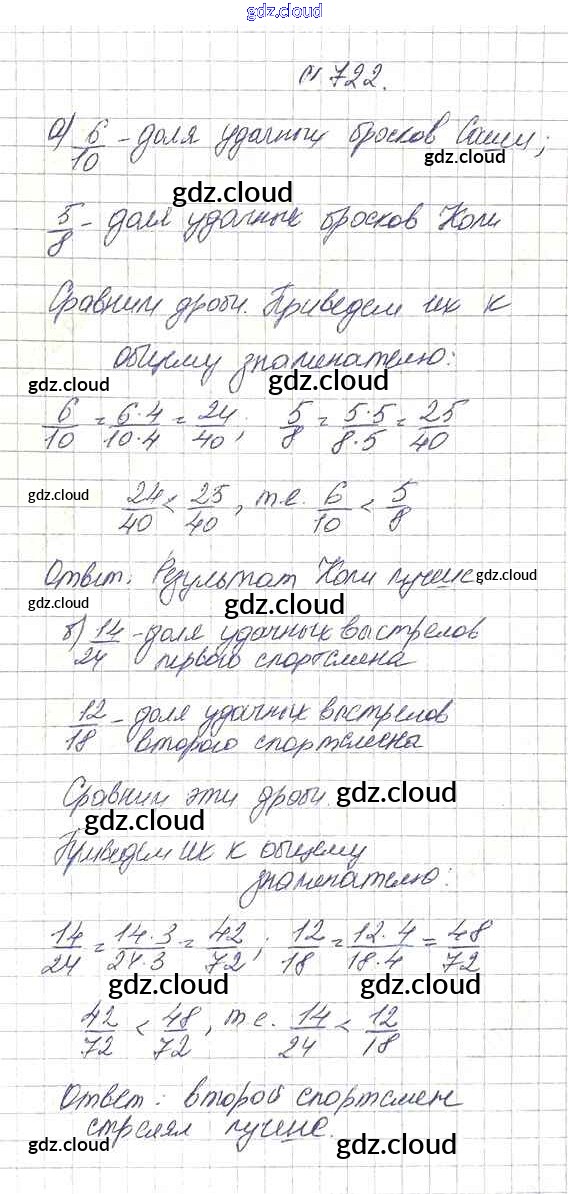 gdz.cloud
№ 722.
а) 6/10 - доля удачных бросков Саши;
gdz.cloud
gdz.cloud
5/8 - доля удачных бросков Коли
Сравним дроби. Приведем их к
gdz.cloud
общему знаменателю:
gdz.cloud gdz.cloud
6/10 = 6·4/10·4 = 24/40; 5/8 = 5·5/8·5 = 25/40
gdz.cloud
24/40 < 25/40, т.е. 6/10 < 5/8
gdz.cloud
Ответ: Результат Коли лучше
gdz.cloud
gdz.cloud gdz.cloud
б) 14/24 - доля удачных выстрелов
первого спортсмена
12/18 - доля удачных выстрелов
второго спортсмена
Сравним эти дроби.
gdz.cloud
gdz.cloud
Приведем их к общему
знаменателю:
14/24 = 14·3/24·3 = 42/72; 12/18 = 12·4/18·4 = 48/72
gdz.cloud gdz.cloud
42/72 < 48/72, т.е. 14/24 < 12/18
Ответ: второй спортсмен
стрелял лучше.
gdz.cloud gdz.cloud